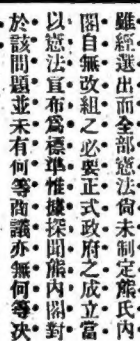 雖經選出而全部憲法尙未制定熊氏內
閣自無改組之必要正式政府之成立當
以憲法宣布爲標準惟據探聞熊內閣對
於該問題並未有何等商議亦無何等决